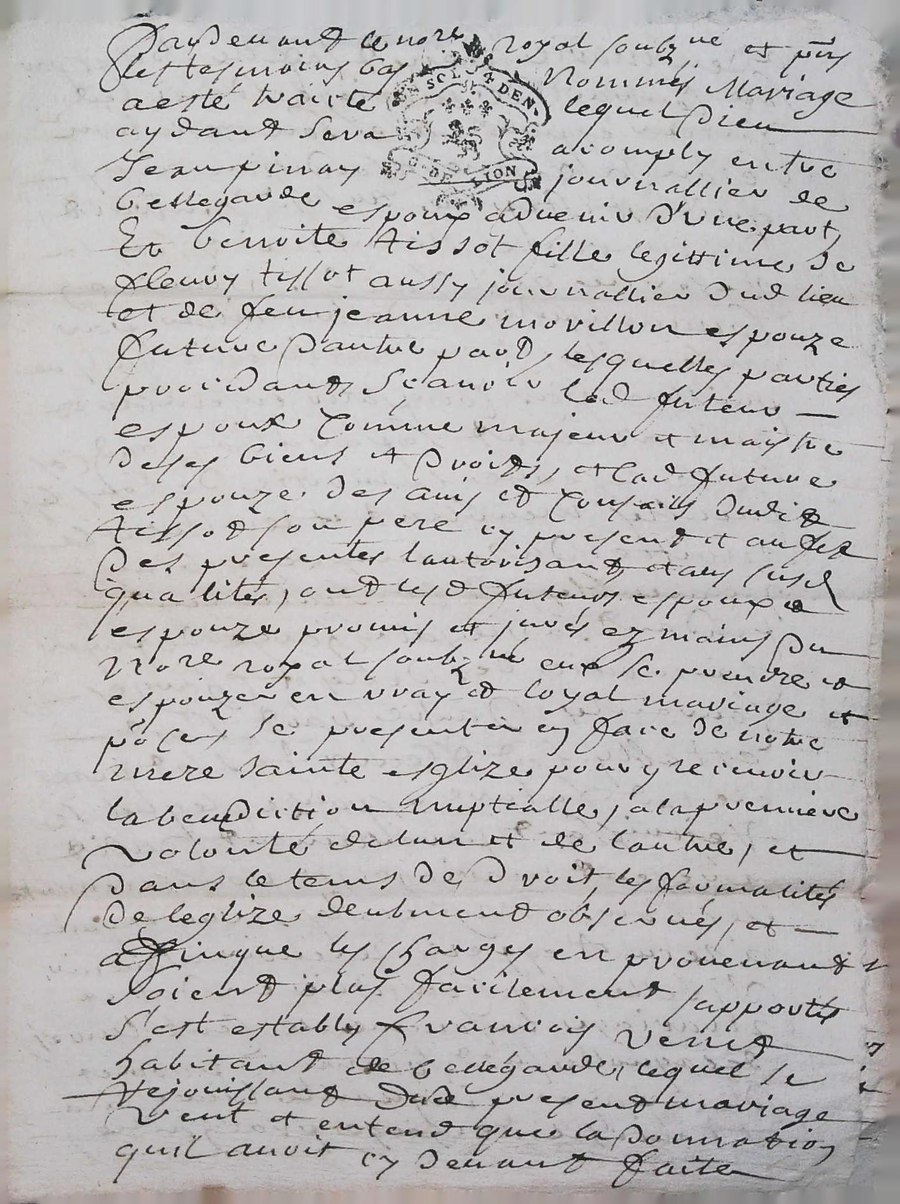 Pardevant le nore royal soubzné et pnts
les tesmoins bas nommés Mariage
a esté traicté lequel Dieu
aydant sera acomply entre
Jean pinay journallier de
bellegarde espoux advenir d'une part,
Et benoite tissot fille legittime de
fleury tissot aussy journallier dud lieu
et de feu jeanne morillon espouze
future d'autre part, lesquelles parties
procedants sçavoir led futeur
espoux comme majeur et maistre
de ses biens et droits, et lad future
espouze des avis et conseils dudit
tissot son pere cy present et au fet
des presentes l'autorisant et aus susd
qualites, ont lesd futeurs espoux et
espouze promis et jurés ez mains du
nore royal soubzné eux se prendre et
espouzer en vray et loyal mariage et
po ce, se presenter en face de notre
mere sainte esglize pour y recevoir
la benediction nuptialle, a la premiere
volonté de lun et de lautre, et
dans le tems de droit, les formalités
de leglize deubment observés, et
affin que les charges en provenant
soient plus facilement supportés
s'est estably francois Venet
habitant de bellegarde, lequel se
rejouissant dud present mariage
veut et entend que la donnation
quil avoit cy devant faite
SOLS 4 DEN
G DE LION